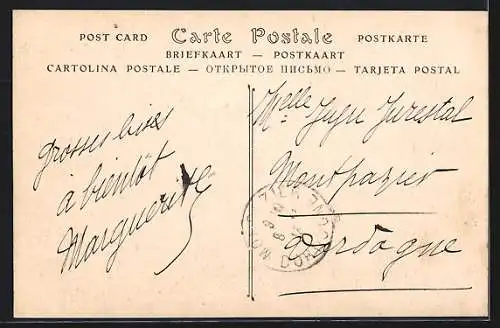 POST CARD Carte Postale POSTKARTE
BRIEFKAART — POSTKAART
CARTOLINA POSTALE — ОТКРЫТОЕ ПИСЬМО — TARJETA POSTAL
Grosses bises
à bientôt
Marguerite
Melle
Montpazier
Dordogne